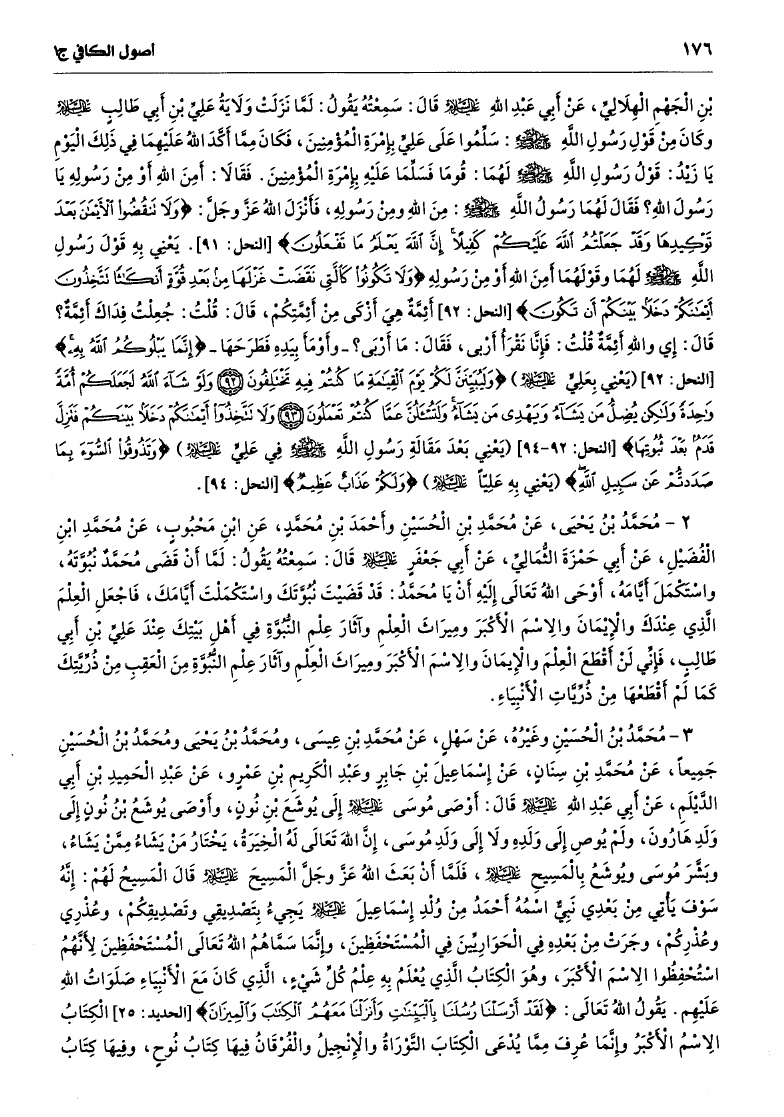 ١٧٦
أصول الكافي ج١
بْنِ الْجَهْمِ الْهِلَالِيِّ، عَنْ أَبِي عَبْدِ اللهِ عليه السلام قَالَ: سَمِعْتُهُ يَقُولُ: لَمَّا نَزَلَتْ وَلَايَةُ عَلِيِّ بْنِ أَبِي طَالِبٍ عليه السلام
وكَانَ مِنْ قَوْلِ رَسُولِ اللَّهِ ﷺ : سَلِّمُوا عَلَى عَلِيٍّ بِإِمْرَةِ الْمُؤْمِنِينَ، فَكَانَ مِمَّا أَكَّدَ اللهُ عَلَيْهِمَا فِي ذَلِكَ الْيَوْمِ
يَا زَيْدُ: قَوْلُ رَسُولِ اللَّهِ ﷺ لَهُمَا: قُومَا فَسَلِّمَا عَلَيْهِ بِإِمْرَةِ الْمُؤْمِنِينَ. فَقَالَا: أَمِنَ اللهِ أَوْ مِنْ رَسُولِهِ يَا
رَسُولَ اللهِ؟ فَقَالَ لَهُمَا رَسُولُ اللَّهِ ﷺ : مِنَ اللهِ ومِنْ رَسُولِهِ، فَأَنْزَلَ اللهُ عَزَّ وجَلَّ: ﴿وَلَا تَنقُضُوا۟ ٱلْأَيْمَـٰنَ بَعْدَ
تَوْكِيدِهَا وَقَدْ جَعَلْتُمُ ٱللَّهَ عَلَيْكُمْ كَفِيلًا إِنَّ ٱللَّهَ يَعْلَمُ مَا تَفْعَلُونَ﴾ [النحل: ٩١]. يَعْنِي بِهِ قَوْلَ رَسُولِ
اللَّهِ ﷺ لَهُمَا وقَوْلَهُمَا أَمِنَ اللهِ أَوْ مِنْ رَسُولِهِ ﴿وَلَا تَكُونُوا۟ كَٱلَّتِى نَقَضَتْ غَزْلَهَا مِنۢ بَعْدِ قُوَّةٍ أَنكَـٰثًا تَتَّخِذُونَ
أَيْمَـٰنَكُمْ دَخَلًۢا بَيْنَكُمْ أَن تَكُونَ﴾ [النحل: ٩٢] أَئِمَّةٌ هِيَ أَزْكَى مِنْ أَئِمَّتِكُمْ، قَالَ: قُلْتُ: جُعِلْتُ فِدَاكَ أَئِمَّةٌ؟
قَالَ: إِي واللهِ أَئِمَّةٌ قُلْتُ: فَإِنَّا نَقْرَأُ أَرْبَى، فَقَالَ: مَا أَرْبَى؟ ـ وأَوْمَأَ بِيَدِهِ فَطَرَحَهَا ـ ﴿إِنَّمَا يَبْلُوكُمُ ٱللَّهُ بِهِۦ﴾
[النحل: ٩٢] (يَعْنِي بِعَلِيٍّ عليه السلام) ﴿وَلَيُبَيِّنَنَّ لَكُمْ يَوْمَ ٱلْقِيَـٰمَةِ مَا كُنتُمْ فِيهِ تَخْتَلِفُونَ (٩٢) وَلَوْ شَآءَ ٱللَّهُ لَجَعَلَكُمْ أُمَّةً
وَٰحِدَةً وَلَـٰكِن يُضِلُّ مَن يَشَآءُ وَيَهْدِى مَن يَشَآءُ وَلَتُسْـَٔلُنَّ عَمَّا كُنتُمْ تَعْمَلُونَ (٩٣) وَلَا تَتَّخِذُوٓا۟ أَيْمَـٰنَكُمْ دَخَلًۢا بَيْنَكُمْ فَتَزِلَّ
قَدَمٌۢ بَعْدَ ثُبُوتِهَا﴾ [النحل: ٩٢-٩٤] (يَعْنِي بَعْدَ مَقَالَةِ رَسُولِ اللَّهِ ﷺ فِي عَلِيٍّ عليه السلام) ﴿وَتَذُوقُوا۟ ٱلسُّوٓءَ بِمَا
صَدَدتُّمْ عَن سَبِيلِ ٱللَّهِ﴾ (يَعْنِي بِهِ عَلِيّاً عليه السلام) ﴿وَلَكُمْ عَذَابٌ عَظِيمٌ﴾ [النحل: ٩٤].
٢ - مُحَمَّدُ بْنُ يَحْيَى، عَنْ مُحَمَّدِ بْنِ الْحُسَيْنِ وأَحْمَدَ بْنِ مُحَمَّدٍ، عَنِ ابْنِ مَحْبُوبٍ، عَنْ مُحَمَّدِ ابْنِ
الْفُضَيْلِ، عَنْ أَبِي حَمْزَةَ الثُّمَالِيِّ، عَنْ أَبِي جَعْفَرٍ عليه السلام قَالَ: سَمِعْتُهُ يَقُولُ: لَمَّا أَنْ قَضَى مُحَمَّدٌ نُبُوَّتَهُ،
واسْتَكْمَلَ أَيَّامَهُ، أَوْحَى اللهُ تَعَالَى إِلَيْهِ أَنْ يَا مُحَمَّدُ: قَدْ قَضَيْتَ نُبُوَّتَكَ واسْتَكْمَلْتَ أَيَّامَكَ، فَاجْعَلِ الْعِلْمَ
الَّذِي عِنْدَكَ والْإِيْمَانَ والِاسْمَ الْأَكْبَرَ ومِيرَاثَ الْعِلْمِ وآثَارَ عِلْمِ النُّبُوَّةِ فِي أَهْلِ بَيْتِكَ عِنْدَ عَلِيِّ بْنِ أَبِي
طَالِبٍ، فَإِنِّي لَنْ أَقْطَعَ الْعِلْمَ والْإِيمَانَ والِاسْمَ الْأَكْبَرَ ومِيرَاثَ الْعِلْمِ وآثَارَ عِلْمِ النُّبُوَّةِ مِنَ الْعَقِبِ مِنْ ذُرِّيَّتِكَ
كَمَا لَمْ أَقْطَعْهَا مِنْ ذُرِّيَّاتِ الْأَنْبِيَاءِ.
٣ - مُحَمَّدُ بْنُ الْحُسَيْنِ وغَيْرُهُ، عَنْ سَهْلٍ، عَنْ مُحَمَّدِ بْنِ عِيسَى، ومُحَمَّدُ بْنُ يَحْيَى ومُحَمَّدُ بْنُ الْحُسَيْنِ
جَمِيعاً، عَنْ مُحَمَّدِ بْنِ سِنَانٍ، عَنْ إِسْمَاعِيلَ بْنِ جَابِرٍ وعَبْدِ الْكَرِيمِ بْنِ عَمْرٍو، عَنْ عَبْدِ الْحَمِيدِ بْنِ أَبِي
الدَّيْلَمِ، عَنْ أَبِي عَبْدِ اللهِ عليه السلام قَالَ: أَوْصَى مُوسَى عليه السلام إِلَى يُوشَعَ بْنِ نُونٍ، وأَوْصَى يُوشَعُ بْنُ نُونٍ إِلَى
وَلَدِ هَارُونَ، ولَمْ يُوصِ إِلَى وَلَدِهِ ولَا إِلَى وَلَدِ مُوسَى، إِنَّ اللهَ تَعَالَى لَهُ الْخِيَرَةُ، يَخْتَارُ مَنْ يَشَاءُ مِمَّنْ يَشَاءُ،
وبَشَّرَ مُوسَى ويُوشَعُ بِالْمَسِيحِ عليه السلام، فَلَمَّا أَنْ بَعَثَ اللهُ عَزَّ وجَلَّ الْمَسِيحَ عليه السلام قَالَ الْمَسِيحُ لَهُمْ: إِنَّهُ
سَوْفَ يَأْتِي مِنْ بَعْدِي نَبِيٌّ اسْمُهُ أَحْمَدُ مِنْ وُلْدِ إِسْمَاعِيلَ عليه السلام يَجِيءُ بِتَصْدِيقِي وتَصْدِيقِكُمْ، وعُذْرِي
وعُذْرِكُمْ، وجَرَتْ مِنْ بَعْدِهِ فِي الْحَوَارِيِّينَ فِي الْمُسْتَحْفَظِينَ، وإِنَّمَا سَمَّاهُمُ اللهُ تَعَالَى الْمُسْتَحْفَظِينَ لِأَنَّهُمُ
اسْتُحْفِظُوا الِاسْمَ الْأَكْبَرَ، وهُوَ الْكِتَابُ الَّذِي يُعْلَمُ بِهِ عِلْمُ كُلِّ شَيْءٍ، الَّذِي كَانَ مَعَ الْأَنْبِيَاءِ صَلَوَاتُ اللهِ
عَلَيْهِم. يَقُولُ اللهُ تَعَالَى: ﴿لَقَدْ أَرْسَلْنَا رُسُلَنَا بِٱلْبَيِّنَـٰتِ وَأَنزَلْنَا مَعَهُمُ ٱلْكِتَـٰبَ وَٱلْمِيزَانَ﴾ [الحديد: ٢٥] الْكِتَابُ
الِاسْمُ الْأَكْبَرُ وإِنَّمَا عُرِفَ مِمَّا يُدْعَى الْكِتَابَ التَّوْرَاةُ والْإِنْجِيلُ والْفُرْقَانُ فِيهَا كِتَابُ نُوحٍ، وفِيهَا كِتَابُ